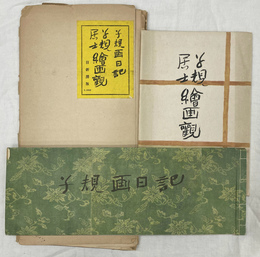 子規画日記
子規
居士繪画觀
子規
居士繪画觀
子規画日記